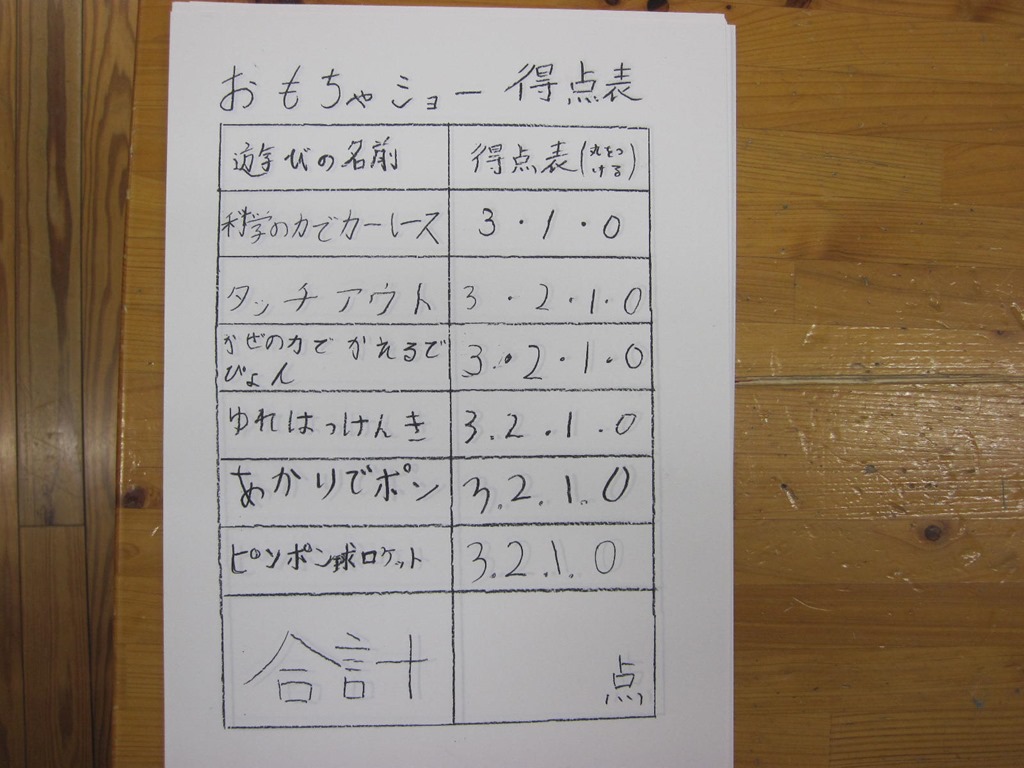 おもちゃショー 得点表
遊びの名前 得点表(丸をつける)
科学の力でカーレース 3・1・0
タッチアウト 3・2・1・0
かぜの力でかえるで
ぴょん 3・2・1・0
ゆれはっけんき 3.2.1.0
あかりでポン 3.2.1.0
ピンポン球ロケット 3.2.1.0
合計 点